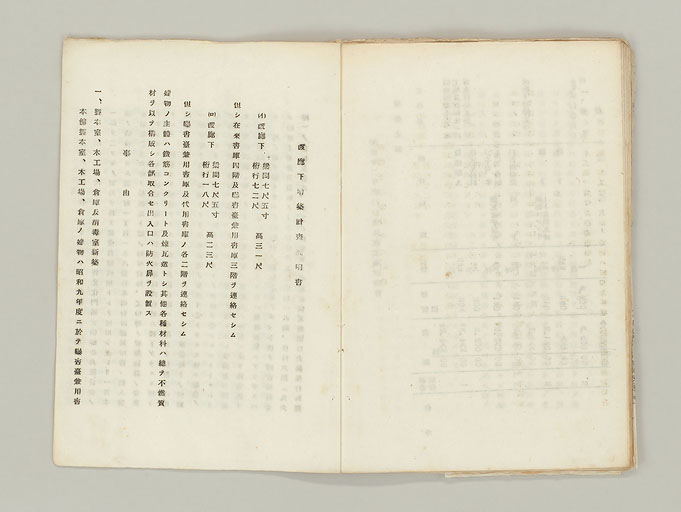 渡廊下増築計畫説明書
(イ)渡廊下 梁間七尺五寸 桁行七二尺 高三一尺
但シ在來書庫四階及曝書臺兼用書庫三階ヲ連絡セシム
(ロ)渡廊下 梁間七尺五寸 桁行一八尺 高二三尺
但シ曝書臺兼用書庫及代用書庫ノ各二階ヲ連絡セシム
建物ノ主體ハ鐵筋コンクリート及煉瓦造トシ其他各種材料ハ總テ不燃質
材ヲ以テ構成シ各部取合セ出入口ハ防火扉ヲ設置ス
事由
一、製本室、木工場、倉庫及消毒室新築
本館製本室、木工場、倉庫ノ建物ハ昭和九年度ニ於テ曝書臺兼用書